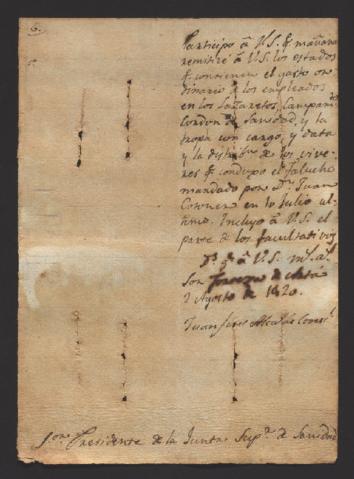 6.
Participo â V.S. q.e mañana
remitiré â V.S. los estados
q.e contienen el gasto or
dinario â los empleados
en los Lazaretos, Campam.tos
Cordon de Sanidad, y la
tropa con cargo, y data
y la distribu.n de los vive
res q.e condujo el falucho
mandado por D.n Juan
en 10 Julio ul-
timo. Incluyo â V.S. el
parte de los facultativos
D.s g.e â V.S. m.s a.s
Son
2 Agosto de 1820.
Juan
Sor. Presidente de la Junta Sup.r de Sanidad